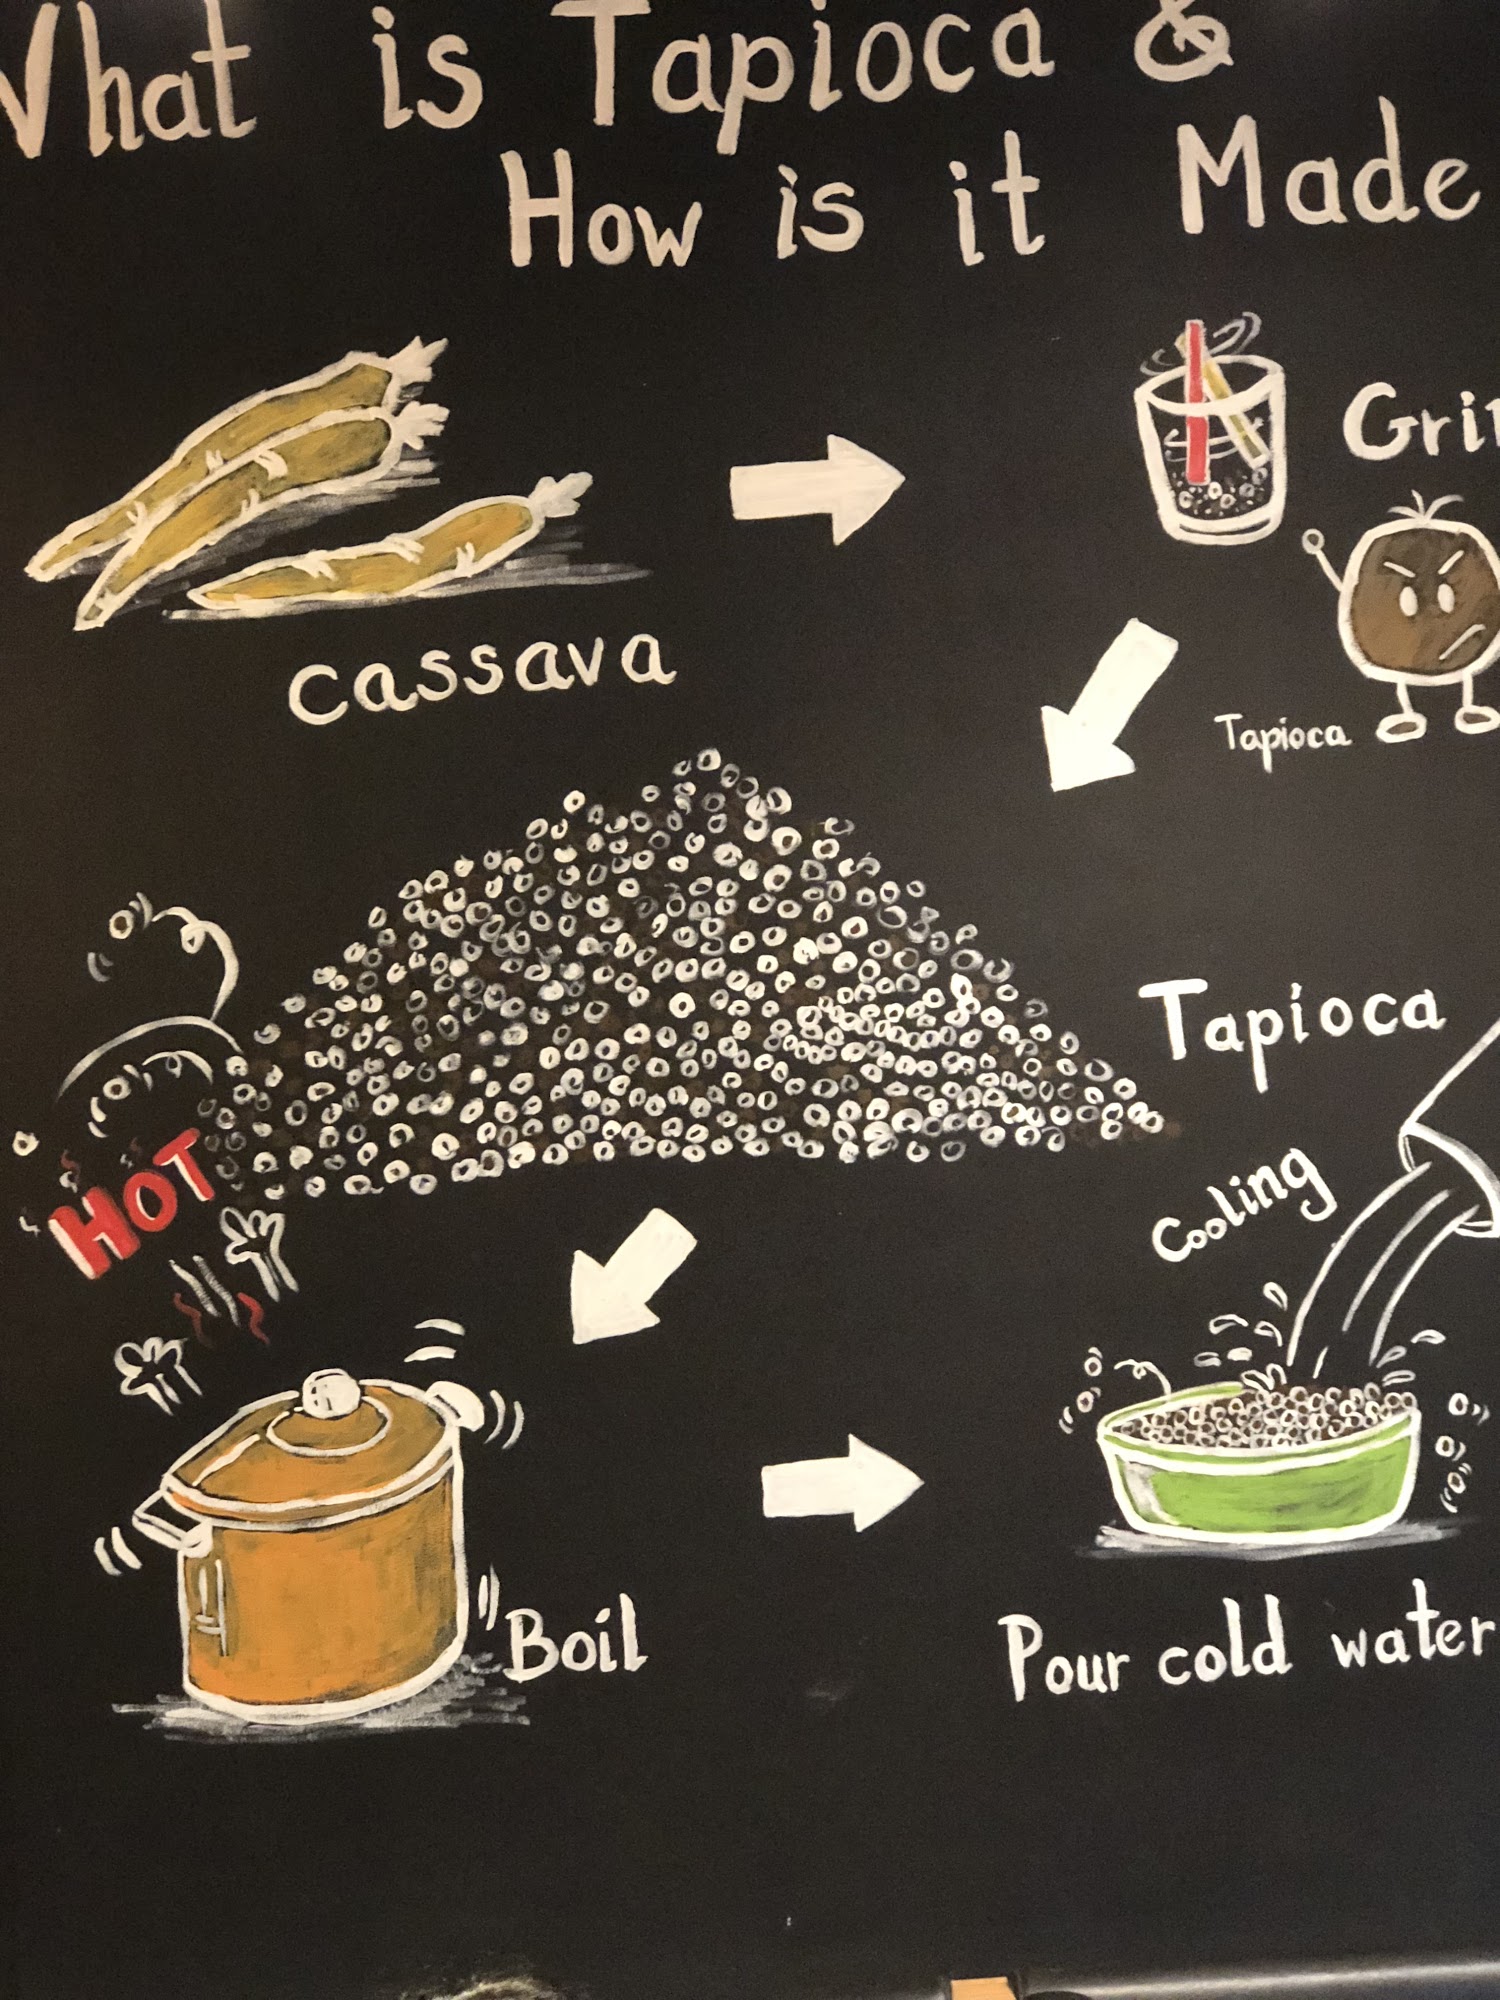 What is Tapioca &
How is it Made
Grin
cassava
Tapioca
Tapioca
HOT
Cooling
Boil
Pour cold water